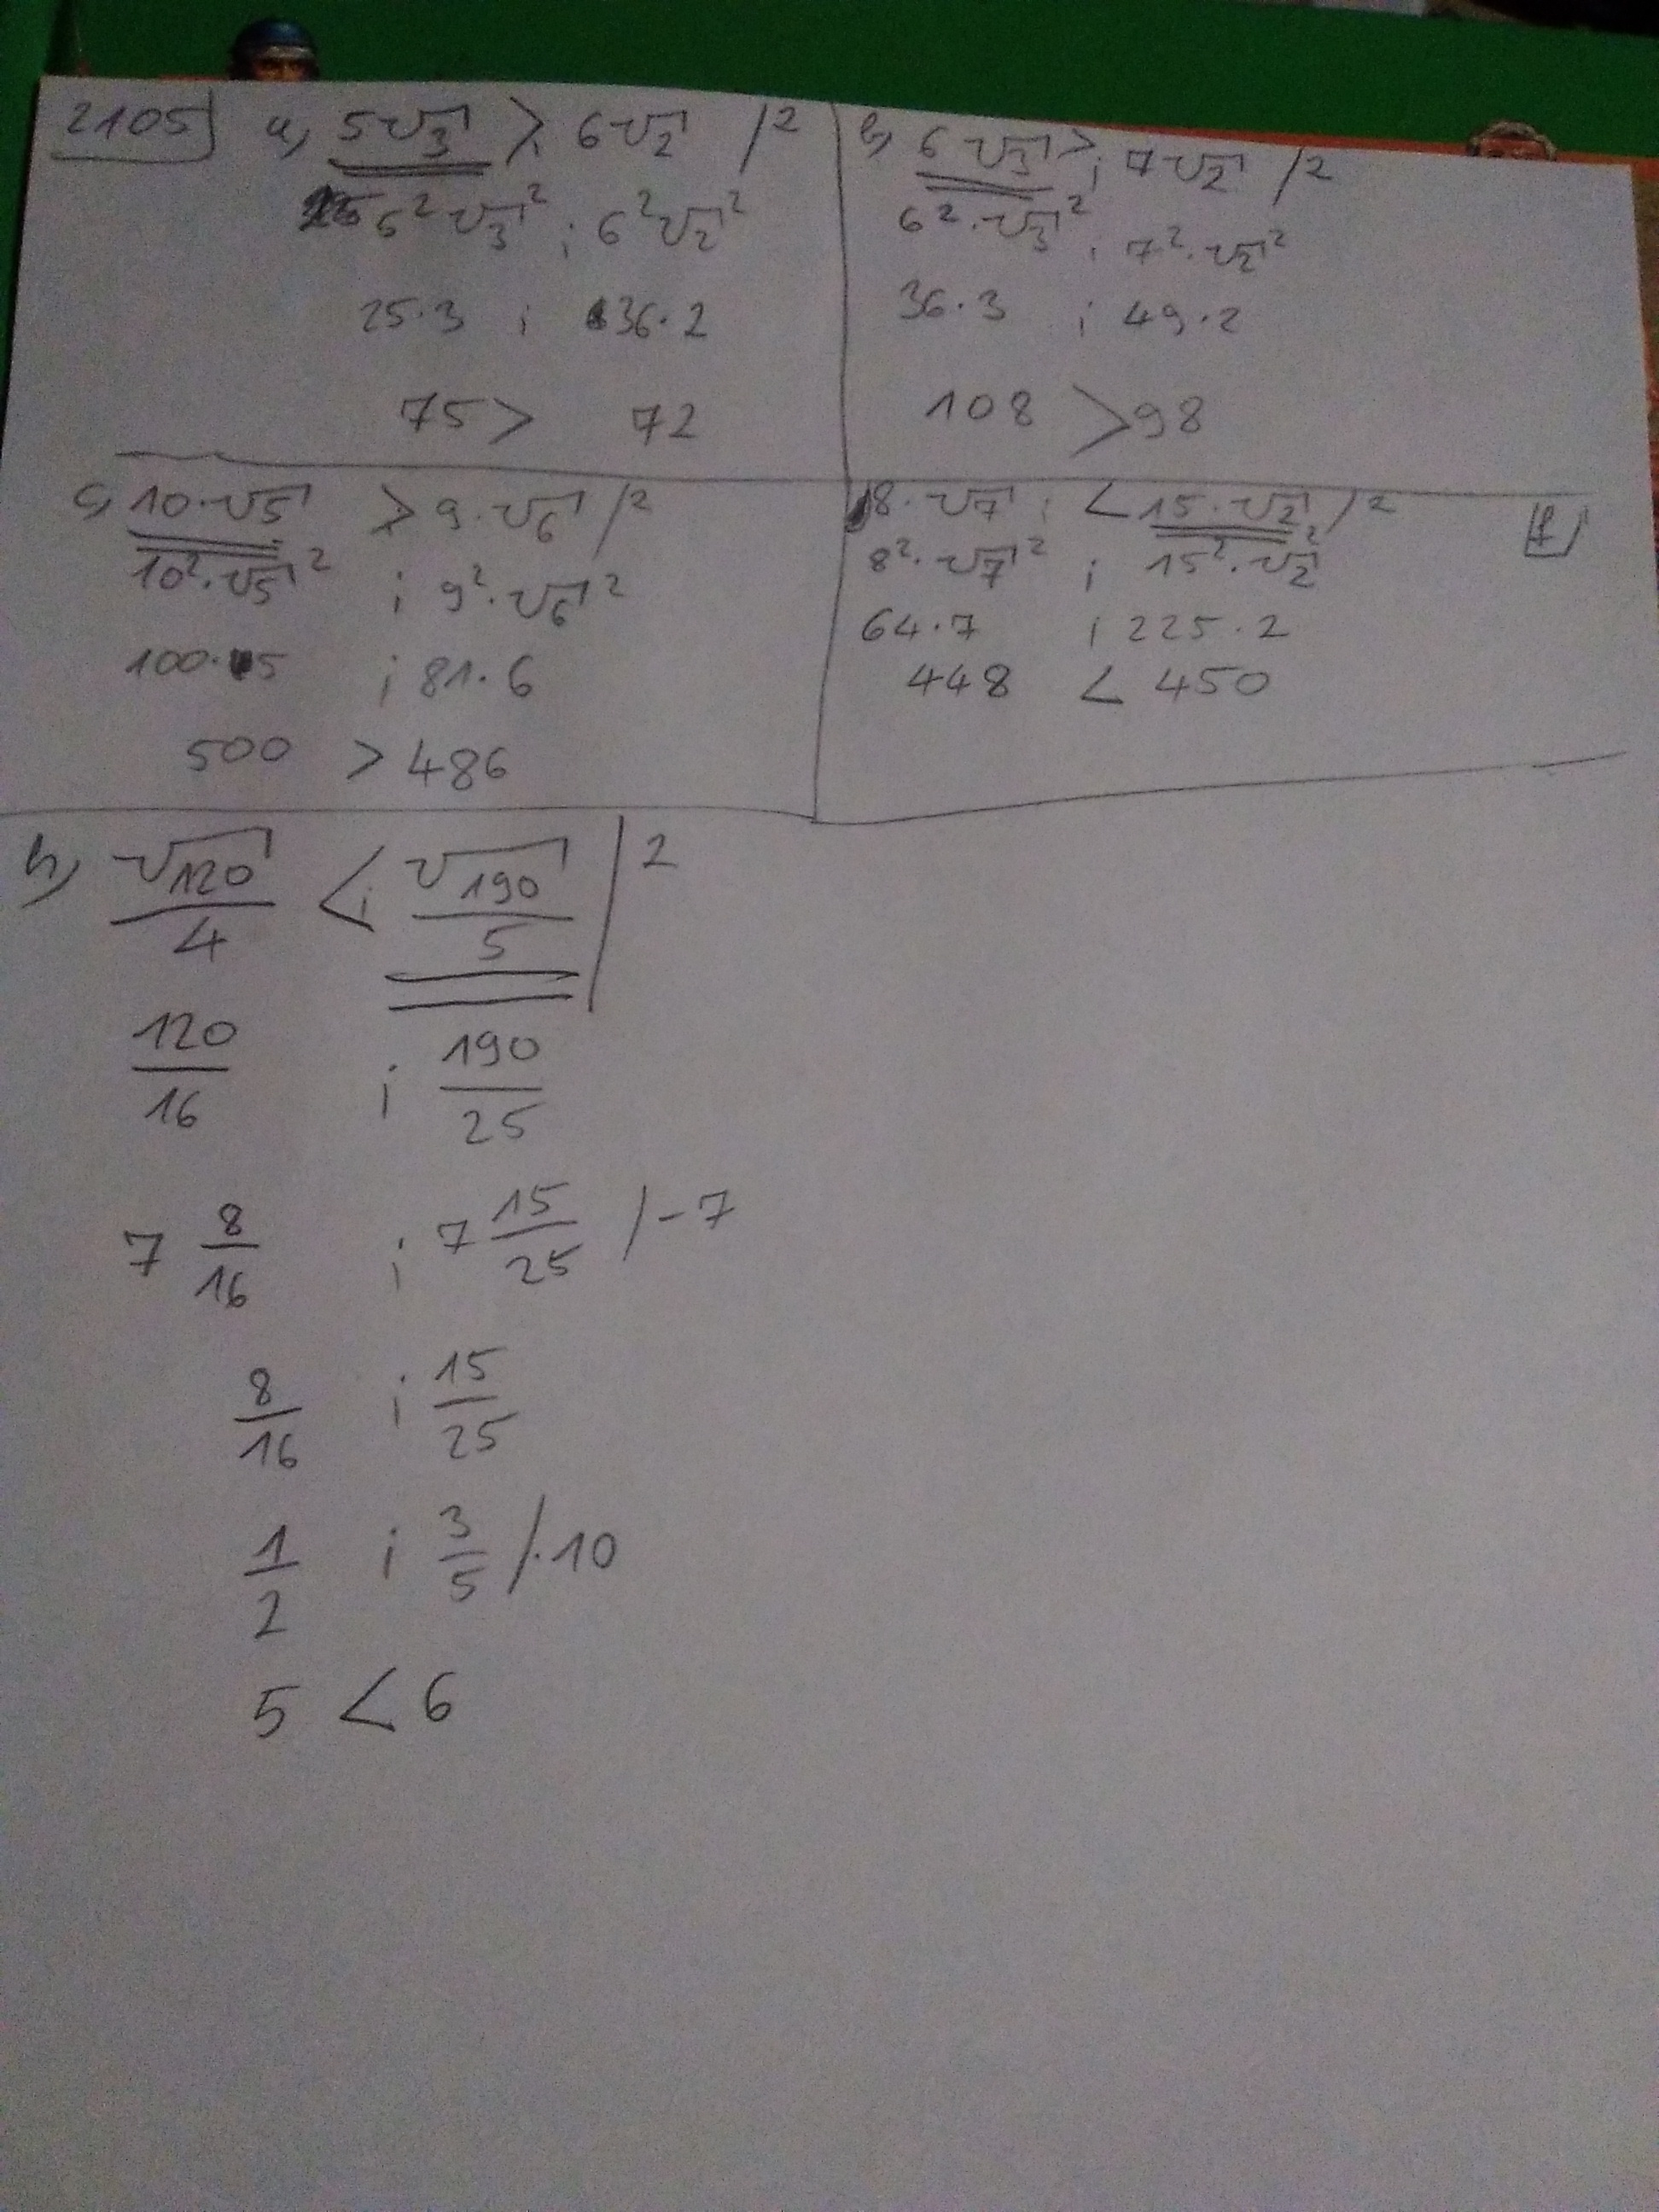 2105
a) 5√3 > ; 6√2 /²
5²√3² ; 6²√2²
25·3 ; 36·2
75 > 72
b) 6√3 > ; 7√2 /²
6²·√3² ; 7²·√2²
36·3 ; 49·2
108 > 98
c) 10·√5 > ; 9·√6 /²
10²·√5² ; 9²·√6²
100·5 ; 81·6
500 > 486
f)
8·√7 ; < 15·√2 /²
8²·√7² ; 15²·√2²
64·7 ; 225·2
448 < 450
h) √120/4 < ; √190/5 |²
120/16 ; 190/25
7 8/16 ; 7 15/25 /-7
8/16 ; 15/25
1/2 ; 3/5 /·10
5 < 6